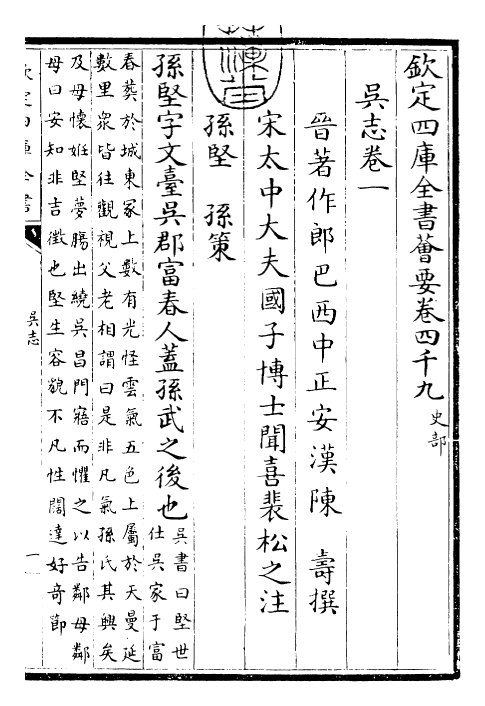 欽定四庫全書薈要卷四千九 史部
吳志卷一
晉著作郎巴西中正安漢陳 壽撰
宋太中大夫國子博士聞喜裴松之注
孫堅 孫策
孫堅字文臺吳郡富春人蓋孫武之後也 吳書曰堅世
仕吳家于富
春葬於城東冢上數有光怪雲氣五色上屬於天曼延
數里衆皆往觀視父老相謂曰是非凡氣孫氏其興矣
及母懷姙堅夢腸出繞吳昌門寤而懼之以告鄰母鄰
母曰安知非吉徵也堅生容貌不凡性闊達好奇節
欽定四庫全書
吳志
一